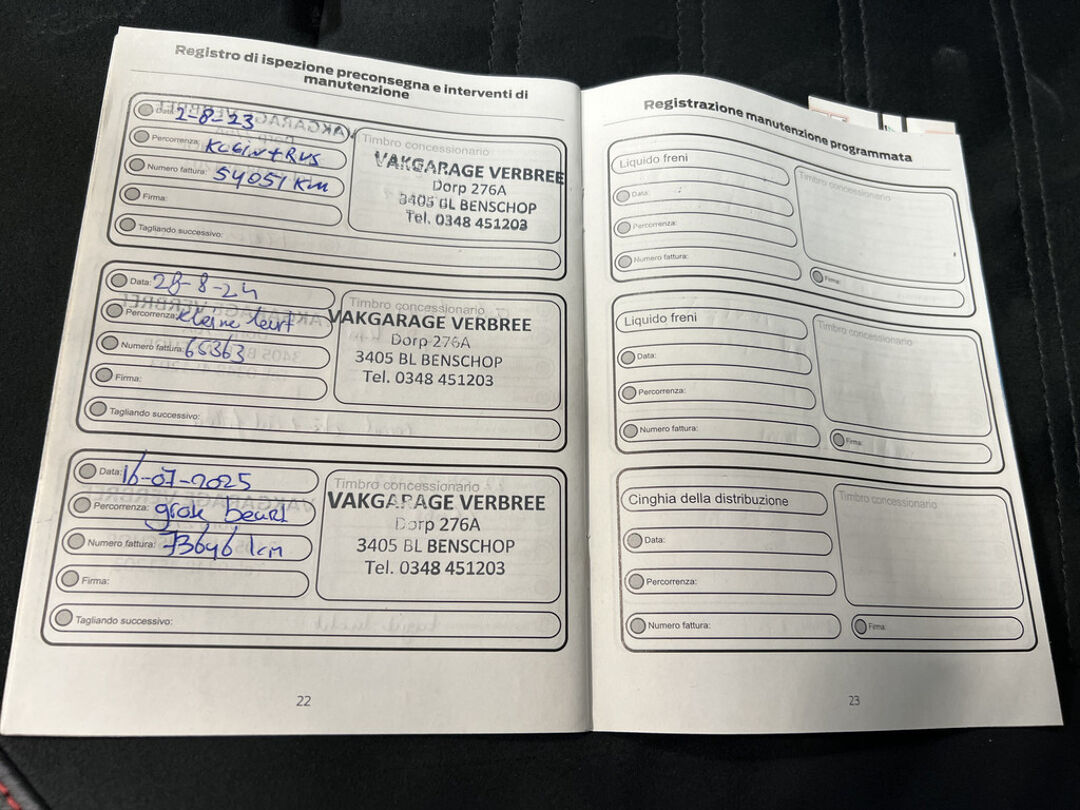 Registro di ispezione preconsegna e interventi di
manutenzione
Data: 2-8-23
Percorrenza:
Numero fattura: 54051 km
Firma:
Tagliando successivo:
Timbro concessionario
VAKGARAGE VERBREE
Dorp 276A
3405 BL BENSCHOP
Tel. 0348 451203
Data: 28-8-24
Percorrenza: kleine beurt
Numero fattura: 65363
Firma:
Tagliando successivo:
Timbro concessionario
VAKGARAGE VERBREE
Dorp 276A
3405 BL BENSCHOP
Tel. 0348 451203
Data: 16-07-2025
Percorrenza: grote beurt
Numero fattura: 73646 km
Firma:
Tagliando successivo:
Timbro concessionario
VAKGARAGE VERBREE
Dorp 276A
3405 BL BENSCHOP
Tel. 0348 451203
22
Registrazione manutenzione programmata
Liquido freni
Data:
Percorrenza:
Numero fattura:
Timbro concessionario
Firma:
Liquido freni
Data:
Percorrenza:
Numero fattura:
Timbro concessionario
Firma:
Cinghia della distribuzione
Data:
Percorrenza:
Numero fattura:
Timbro concessionario
Firma:
23